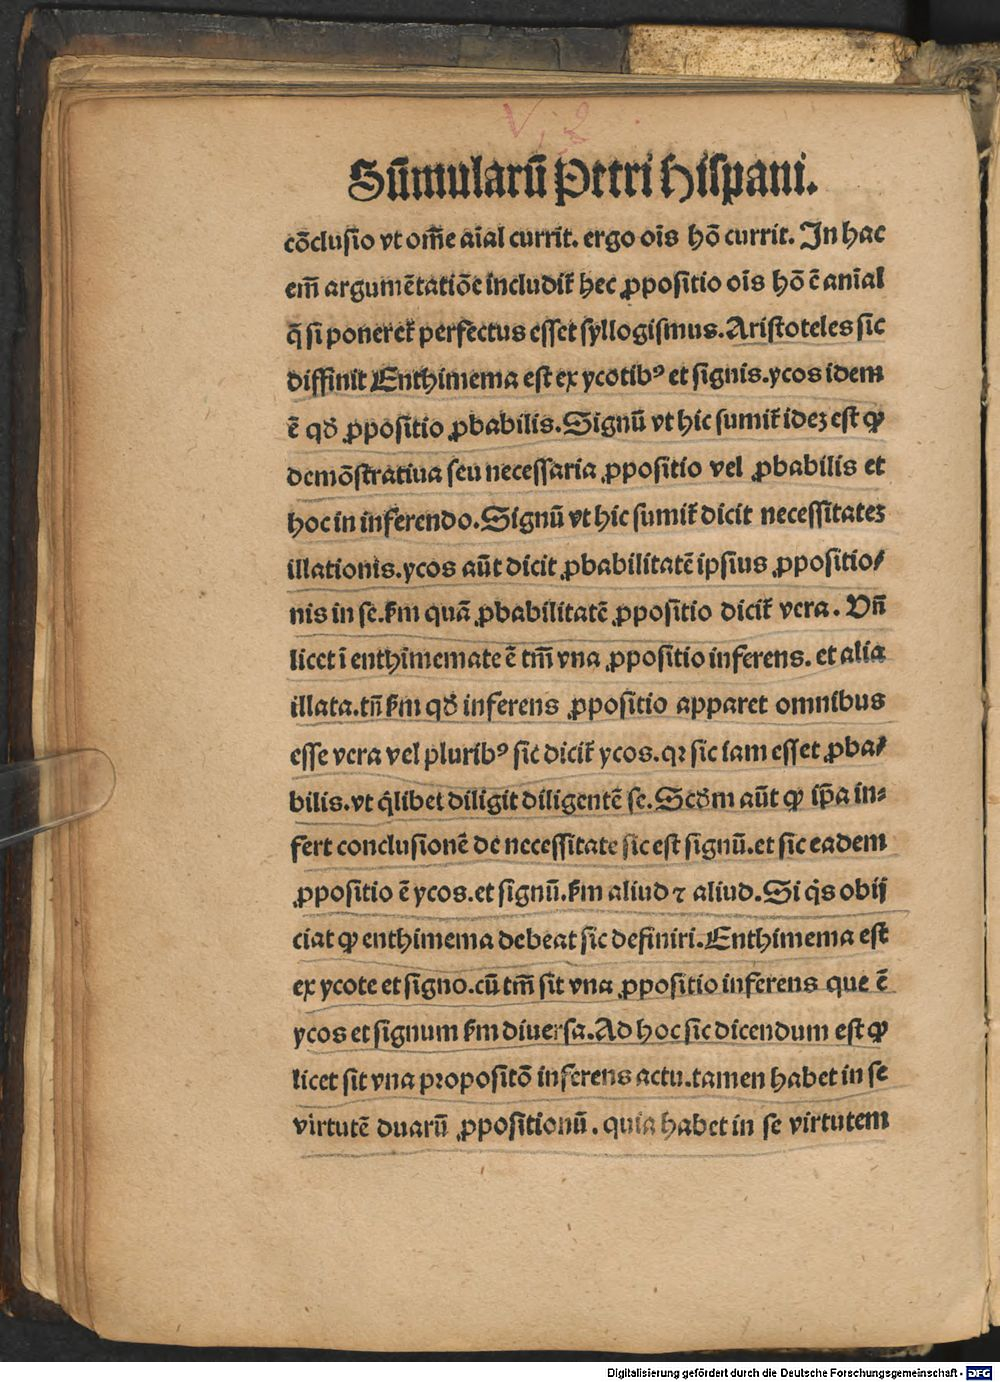 Sūmularū Petri Hispani.
cōclusio vt om̄e aīal currit. ergo oīs hō currit. In hac
em̄ argumētatiōe includit᷑ hec ꝓpositio oīs hō ē anīal
q̄ si poneret᷑ perfectus esset syllogismus. Aristoteles sic
diffinit Enthimema est ex ycotibꝰ et signis. ycos idem
ē qđ ꝓpositio ꝓbabilis. Signū vt hic sumit᷑ ideꝫ est ꝙ
demōstratiua seu necessaria ꝓpositio vel ꝓbabilis et
hoc in inferendo. Signū vt hic sumit᷑ dicit necessitateꝫ
illationis. ycos aūt dicit ꝓbabilitatē ipsius ꝓpositio/
nis in se. ẜm quā ꝓbabilitatē ꝓpositio dicit᷑ vera. Vn̄
licet ī enthimemate ē tm̄ vna ꝓpositio inferens. et alia
illata. tn̄ ẜm qđ inferens ꝓpositio apparet omnibus
esse vera vel pluribꝰ sic dicit᷑ ycos. qꝛ sic iam esset ꝓba/
bilis. vt q̇libet diligit diligentē se. Scđm aūt ꝙ ip̄a in⸗
fert conclusionē de necessitate sic est signū. et sic eadem
ꝓpositio ē ycos. et signū. ẜm aliud ⁊ aliud. Si q̇s obij
ciat ꝙ enthimema debeat sic definiri. Enthimema est
ex ycote et signo. cū tm̄ sit vna ꝓpositio inferens que ē
ycos et signum ẜm diuersa. Ad hoc sic dicendum est ꝙ
licet sit vna pꝛopositō inferens actu. tamen habet in se
virtutē duarū ꝓpositionū. quia habet in se virtutem
Digitalisierung gefördert durch die Deutsche Forschungsgemeinschaft - DFG